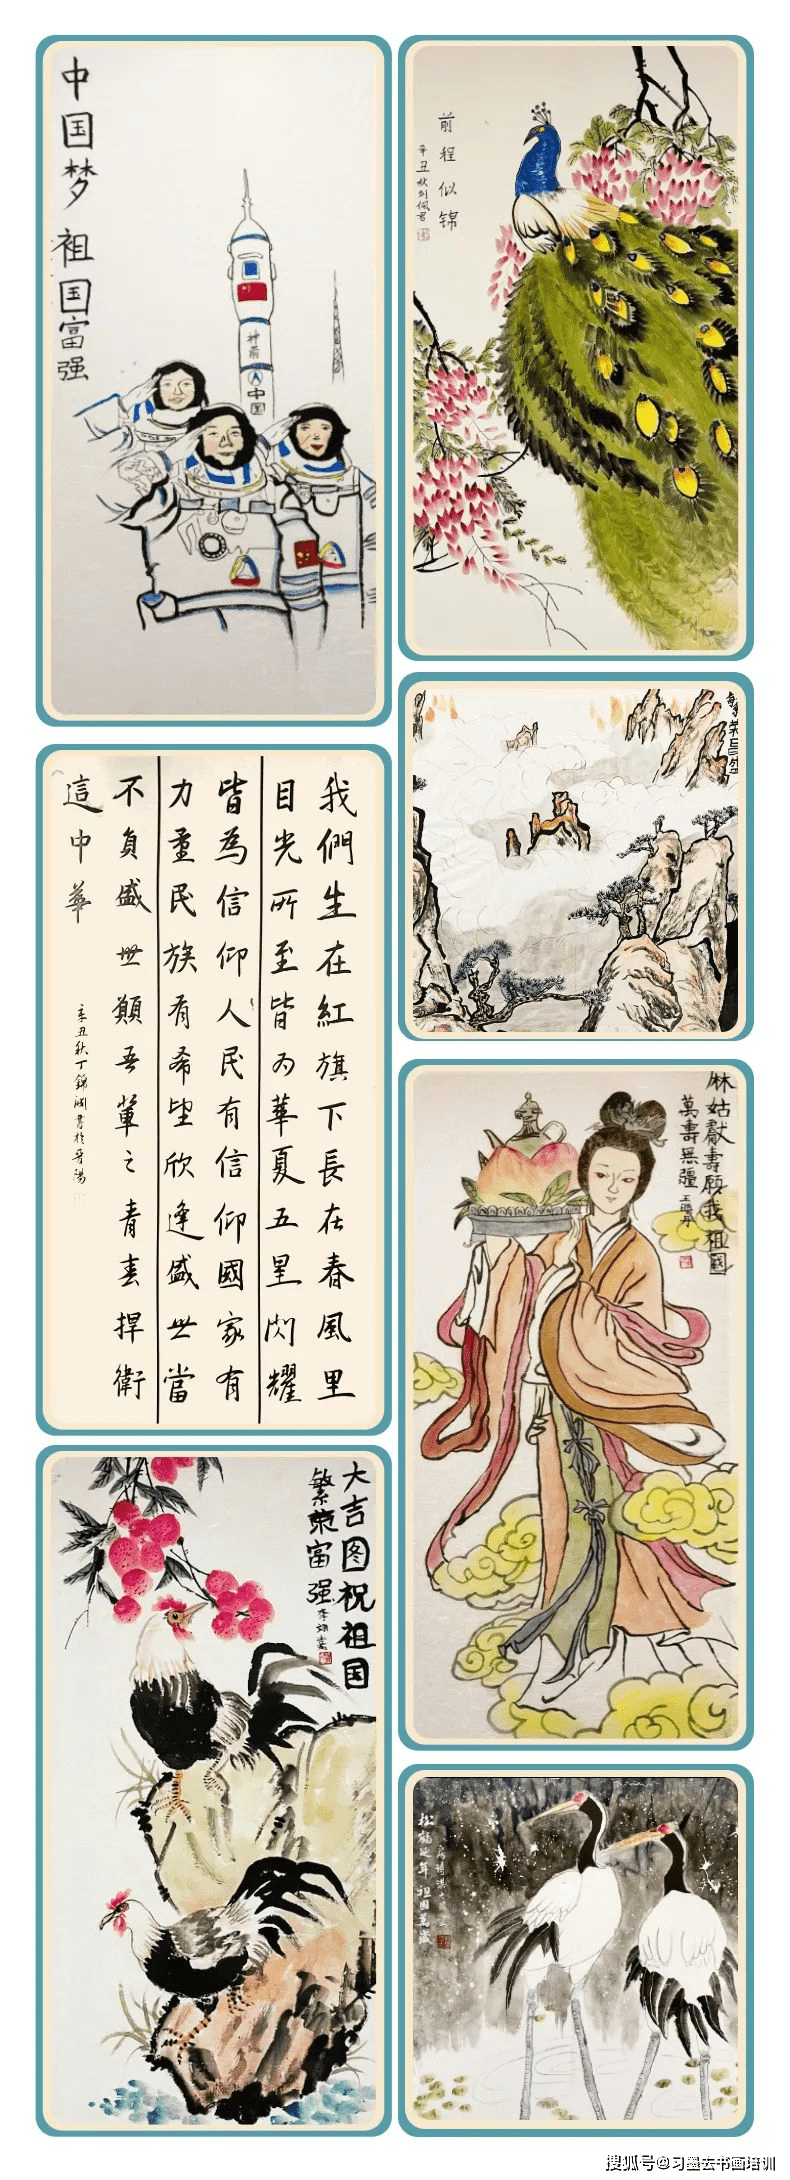 中国梦
祖国富强
神箭
中国
前程似锦
辛丑秋刘佩君
繁荣昌盛
我們生在紅旗下長在春風里
目光所至皆为華夏五星閃耀
皆為信仰人民有信仰國家有
力量民族有希望欣逢盛世當
不負盛世願吾輩之青春捍衛
這中華
辛丑秋丁錦澜書於晋陽
麻姑獻壽願我祖國
萬壽無疆
王曉丹
大吉图祝祖国
繁荣富强
松鶴延年祖国萬歲
搜狐号@习墨去书画培训